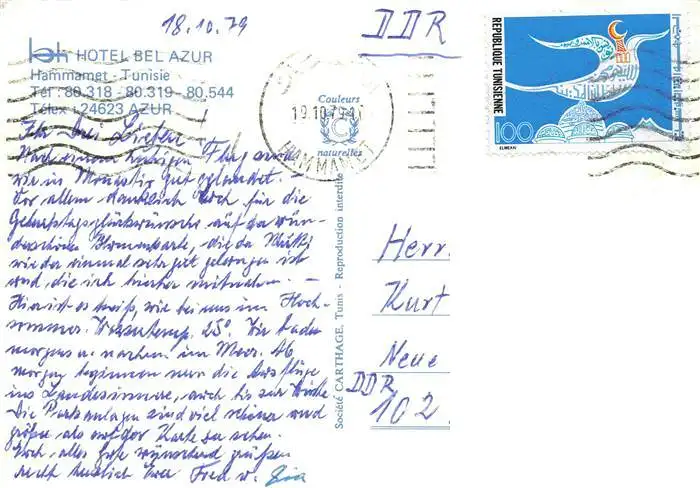 18.10.79
DDR
HOTEL BEL AZUR
Hammamet - Tunisie
Tél : 80.318 - 80.319 - 80.544
Télex : 24623 AZUR
REPUBLIQUE TUNISIENNE
100
ELMEKKI
Couleurs
naturelles
19.10.79
HAMMAMET
Société CARTHAGE, Tunis - Reproduction interdite
Ihr bei Lieben!
Nach einem ruhigen Flug sind
wir in Monastir gut gelandet.
Vor allem danke ich Euch für die
Geburtstagsglückwünsche auf der wun-
derschönen Blumenkarte, die der Mutti
wieder einmal sehr gut gelungen ist
und, die ich hierher mitnahm. —
Hier ist es heiß, wie bei uns im Hoch-
sommer. Wassertemp. 25°. Wir baden
morgens u. nachm. im Meer. Ab
morgen beginnen nun die Ausflüge
ins Landesinnere, auch bis zur Wüste.
Die Parkanlagen sind viel schöner und
größer als auf der Karte zu sehen.
Euch alles Gute wünschend grüßen
recht herzlich Euer Fred u.
Herrn
Kurt
Neue
DDR
102